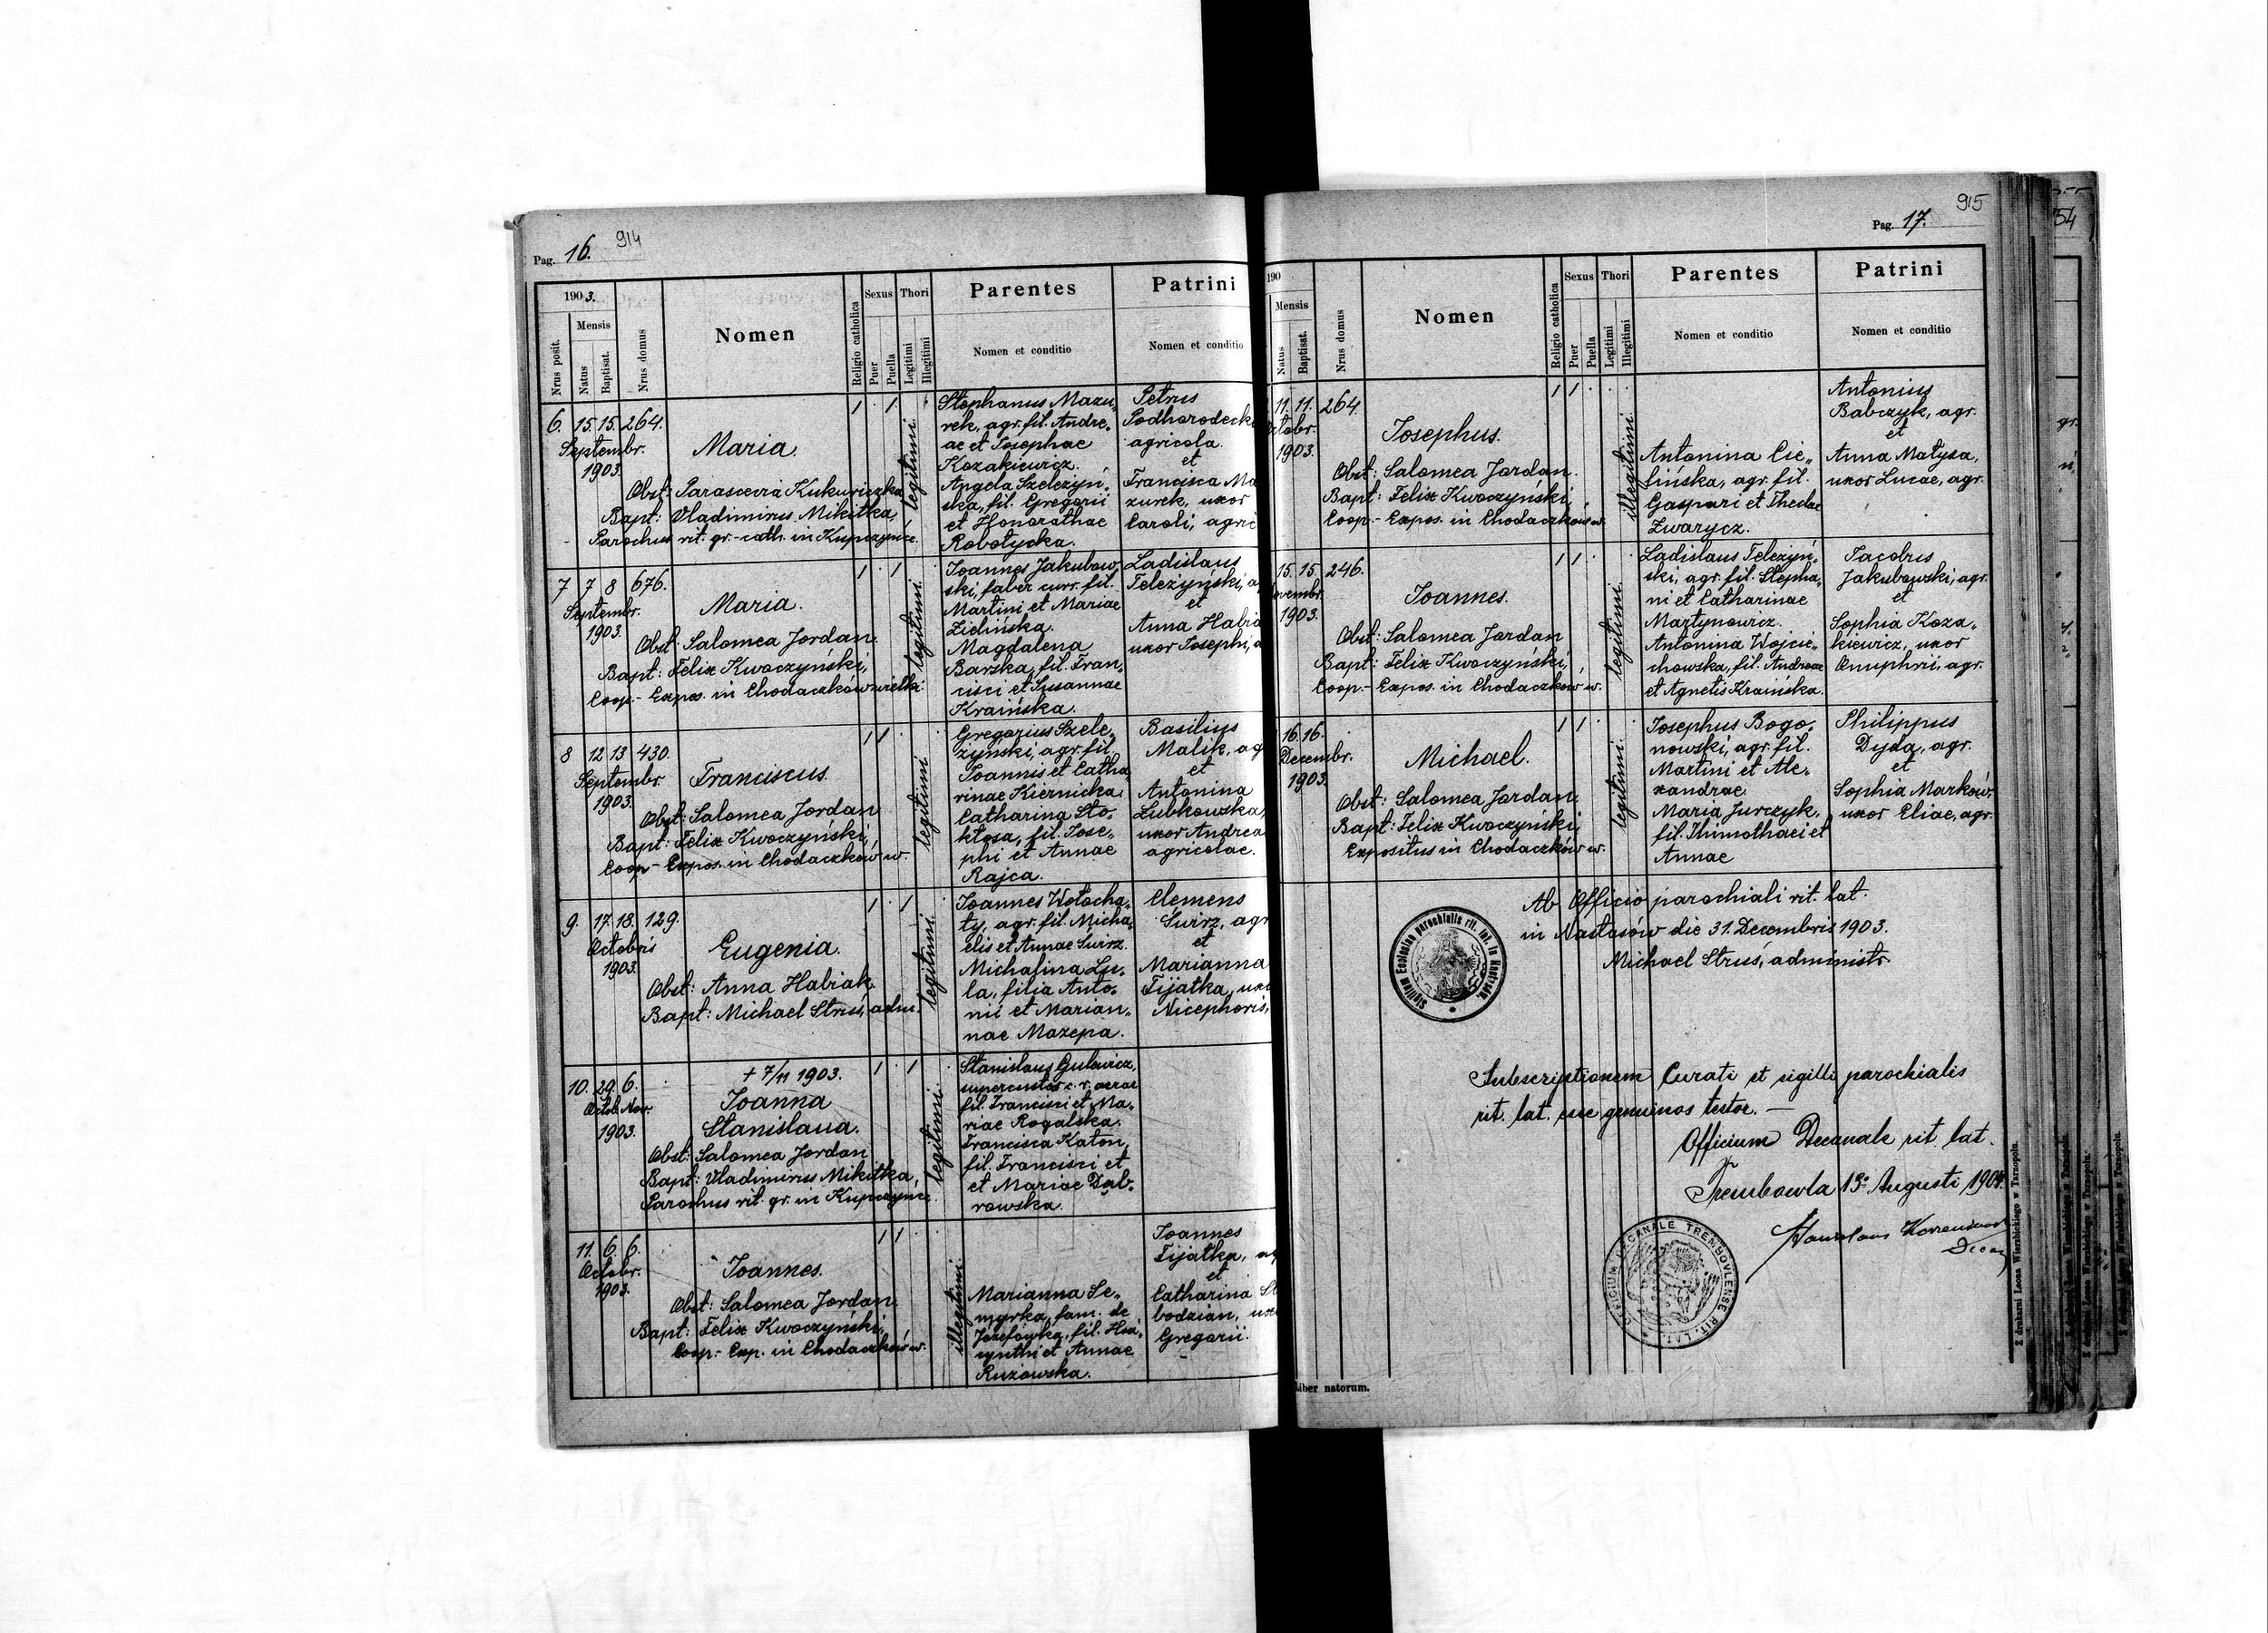 Pag. 16. 914
1903.
Nrus posit.
Mensis
Natus
Baptisat.
Nrus domus
Nomen
Religio catholica
Sexus
Puer
Puella
Thori
Legitimi
Illegitimi
Parentes
Nomen et conditio
Patrini
Nomen et conditio
6. 15. 15. 264.
Septembr.
1903.
Maria.
Obst: Parascevia Kukuriczka
Bapt: Vladimirus Mikitka,
Parochus rit. gr.-cath. in Kupczynce.
legitimi.
Stephanus Mazu-
rek, agr. fil. Andre-
ae et Josephae
Kozakiewicz.
Angela Szelezyń-
ska, fil. Gregorii
et Honorathae
Robotycka.
Petrus
Podhorodeck
agricola.
et
Francisca Ma
zurek, uxor
Caroli, agric
7 7 8 676.
Septembr.
1903.
Maria.
Obst: Salomea Jordan.
Bapt: Felix Kwoczyński,
Coop.- Expos. in Chodaczków wielki.
legitimi.
Joannes Jakubow-
ski, faber curr. fil.
Martini et Mariae
Zielińska.
Magdalena
Barska, fil. Fran-
cisci et Susannae
Kraińska.
Ladislaus
Telezyński, a
et
Anna Habia
uxor Josephi, a
8 12 13 430.
Septembr.
1903.
Franciscus.
Obst: Salomea Jordan
Bapt: Felix Kwoczyński,
Coop- Expos. in Chodaczków w.
legitimi
Gregorius Szele-
zyński, agr. fil.
Joannis et Catha-
rinae Kiernicka.
Catharina Sto-
ktosa, fil. Jose-
phi et Annae
Rajca.
Basilius
Malik, ag
et
Antonina
Lubkowska,
uxor Andrea
agricolae.
9. 17. 18. 129.
Octobris
1903.
Eugenia.
Obst: Anna Habiak
Bapt: Michael Struś, adm.
legitimi.
Joannes Wołocha-
ty, agr. fil. Micha-
elis et Annae Świrz.
Michalina Lu-
la, filia Anto-
nii et Marian-
nae Mazepa.
Clemens
Świrz, agr
et
Marianna
Fijatka, uxo
Nicephoris,
10. 29. 6.
Octob. Nov.
1903.
+ 7/11 1903.
Joanna
Stanislaua.
Obst: Salomea Jordan
Bapt: Vladimirus Mikitka,
Parochus rit. gr. in Kupczynce.
legitimi
Stanislaus Gulewicz,
supercustos c. r. aerar
fil. Francisci et Ma-
riae Rogalska.
Francisca Katon,
fil. Francisci et
et Mariae Dąb-
rowska.
11. 6. 6.
Octobr.
1903.
Joannes.
Obst: Salomea Jordan.
Bapt: Felix Kwoczyński,
Coop.- Exp. in Chodaczków w.
illegitimi
Marianna Se-
myrka, fam. de
Józefówka, fil. Hia-
cynthi et Annae
Ruzowska.
Joannes
Fijatka, ag
et
Catharina St
bodzian, uxo
Gregorii.
915
Pag. 17.
190
Mensis
Natus
Baptisat.
Nrus domus
Nomen
Religio catholica
Sexus
Puer
Puella
Thori
Legitimi
Illegitimi
Parentes
Nomen et conditio
Patrini
Nomen et conditio
11. 11. 264.
ctobr.
1903.
Josephus.
Obst: Salomea Jordan.
Bapt: Felix Kwoczyński,
Coop.- Expos. in Chodaczków w.
illegitimi
Antonina Cie-
lińska, agr. fil.
Gaspari et Theclae
Zwarycz.
Antonius
Babczyk, agr.
et
Anna Matysa,
uxor Lucae, agr.
15. 15. 246.
ovembr.
1903.
Joannes.
Obst: Salomea Jordan
Bapt: Felix Kwoczyński,
Coop.- Expos. in Chodaczków w.
legitimi.
Ladislaus Telezyń-
ski, agr. fil. Stepha-
ni et Catharinae
Martynowicz.
Antonina Wojcie-
chowska, fil. Andreae
et Agnetis Kraińska.
Jacobus
Jakubowski, agr.
et
Sophia Koza-
kiewicz, uxor
Onuphrii, agr.
16. 16.
Decembr.
1903.
Michael.
Obst: Salomea Jordan.
Bapt: Felix Kwoczyński,
Expositus in Chodaczków w.
legitimi.
Josephus Bogo-
nowski, agr. fil.
Martini et Ale-
xandrae.
Maria Jurczyk,
fil. Thimothaei et
Annae
Philippus
Dyda, agr.
et
Sophia Marków,
uxor Eliae, agr.
Ab Officio parochiali rit. lat.
in Nastasów die 31. Decembris 1903.
Michael Struś, administr.
Subscriptionem Curati et sigilli parochialis
rit. lat. esse genuinos testor. —
Officium Decanale rit. lat.
Trembowla 13. Augusti 1904.
OFFICIUM DECANALE TREMBOVLENSE RIT. LAT.
Liber natorum.
Z drukarni Leona Wierzbickiego w Tarnopolu.